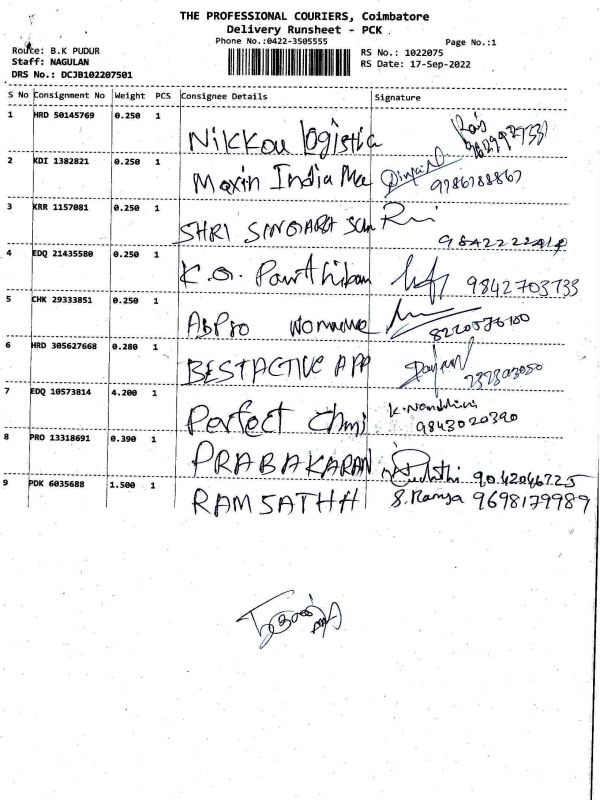 THE PROFESSIONAL COURIERS, Coimbatore
Delivery Runsheet - PCK
Phone No.:0422-3505555
Page No.:1
Route: B.K PUDUR
RS No.: 1022075
Staff: NAGULAN
RS Date: 17-Sep-2022
DRS No.: DCJB102207501
S No Consignment No Weight PCS Consignee Details Signature
1 HRD 50145769 0.250 1
Nikkou logistia
2 KDI 1382821 0.250 1
Maxin India 9786788867
3 KRR 1157081 0.250 1
SHRI
4 EDQ 21435580 0.250 1
K.G. Parthiban 9842703733
5 CHK 29333851 0.250 1
AbPro
6 HRD 305627668 0.280 1
BESTACTIVE APP
7 EDQ 10573814 4.200 1
Perfect K.Nandhini
9843020390
8 PRO 13318691 0.390 1
PRABAKARAN 9042046725
9 PDK 6035688 1.500 1
RAM SATHH S.Ramya 9698179989